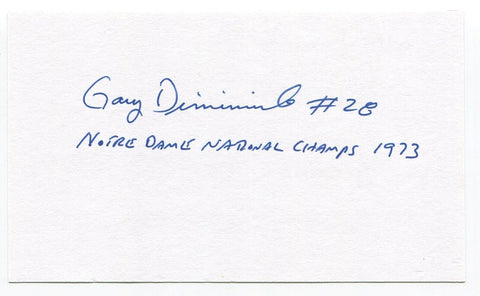 Gary Diminick #28
NOTRE DAME NATIONAL CHAMPS 1973